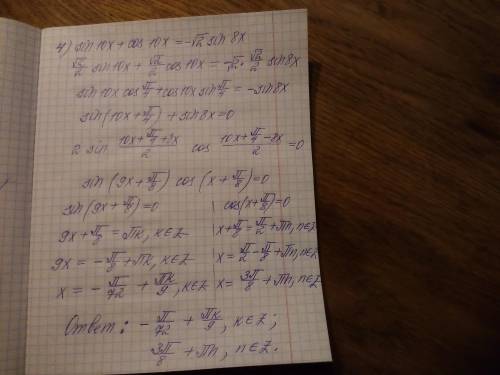 4) sin 10x + cos 10x = -√2 sin 8x
√2/2 sin 10x + √2/2 cos 10x = -√2 · √2/2 sin 8x
sin 10x cos π/4 + cos 10x sin π/4 = - sin 8x
sin (10x + π/4) + sin 8x = 0
2 sin (10x + π/4 + 8x)/2 cos (10x + π/4 - 8x)/2 = 0
sin (9x + π/8) cos (x + π/8) = 0
sin (9x + π/8) = 0 cos (x + π/8) = 0
9x + π/8 = πk, k∈Z x + π/8 = π/2 + πn, n∈Z
9x = - π/8 + πk, k∈Z x = π/2 - π/8 + πn, n∈Z
x = - π/72 + πk/9, k∈Z x = 3π/8 + πn, n∈Z
Ответ: - π/72 + πk/9, k∈Z;
3π/8 + πn, n∈Z.